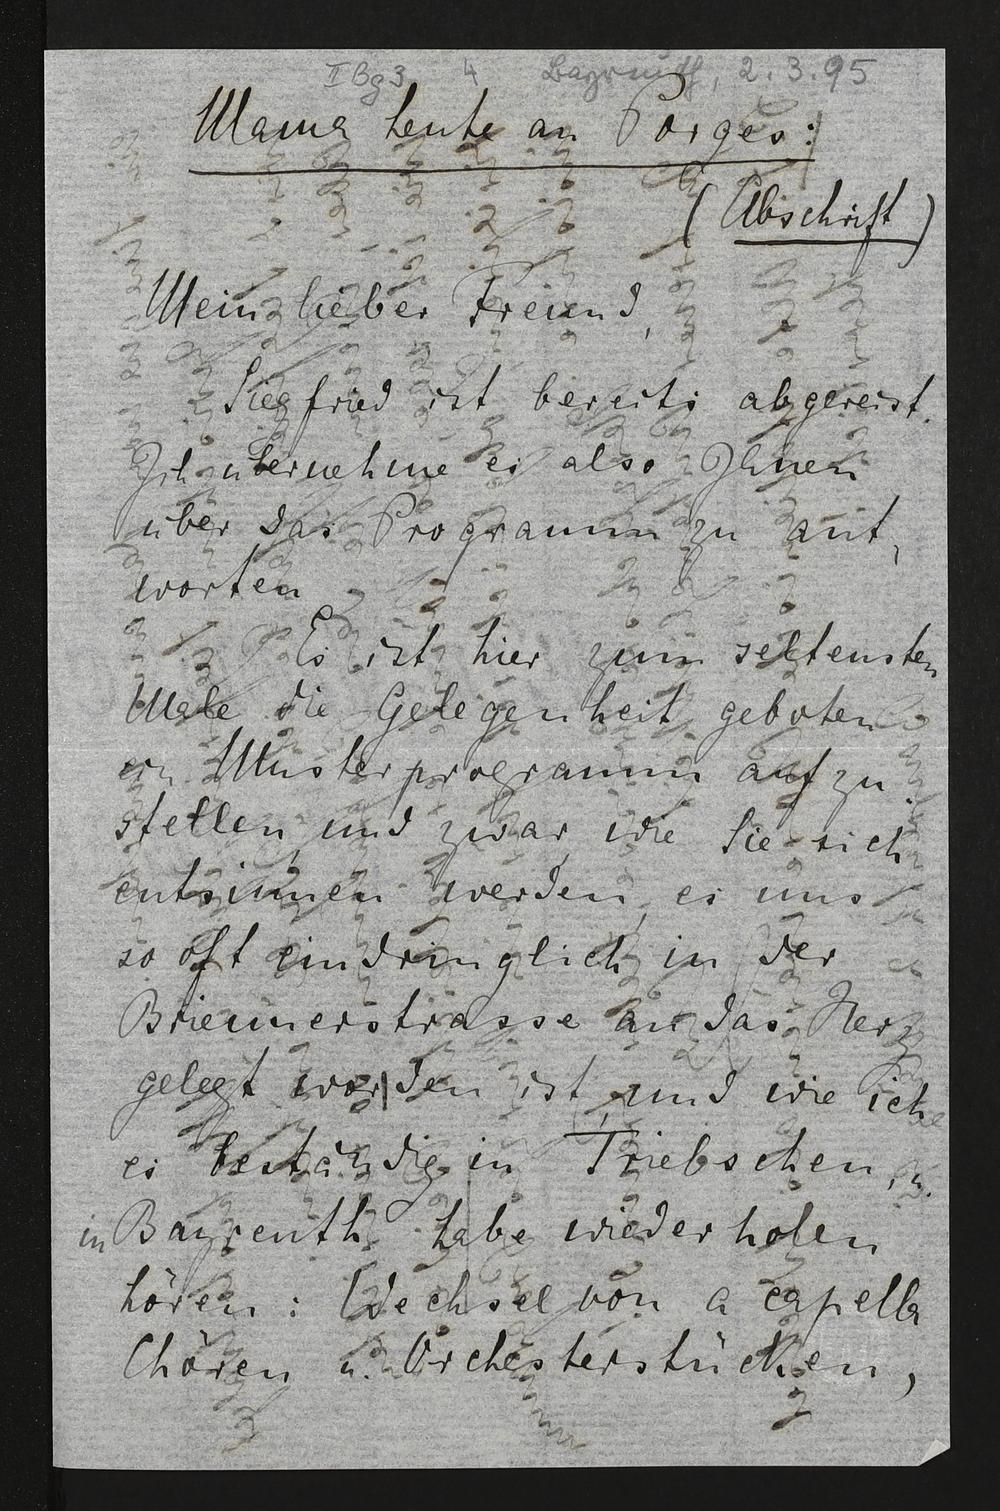 II Bg 3 4 Bayreuth, 2.3.95
Mama heute an Porges:
(Abschrift)
Mein lieber Freund,
Siegfried ist bereits abgereist.
Ich übernehme es also Ihnen
über das Programm zu ant,
worten
Es ist hier zum seltensten
Male die Gelegenheit geboten
ein Musterprogramm aufzu
stellen und zwar, wie Sie sich
entsinnen werden, es uns
so oft eindringlich in der
Briennerstrasse an das Herz
gelegt worden ist, und wie ich
es beständig in Triebschen, u.
in Bayreuth habe wiederholen
hören: Wechsel von a capella
Chören u. Orchesterstücken,